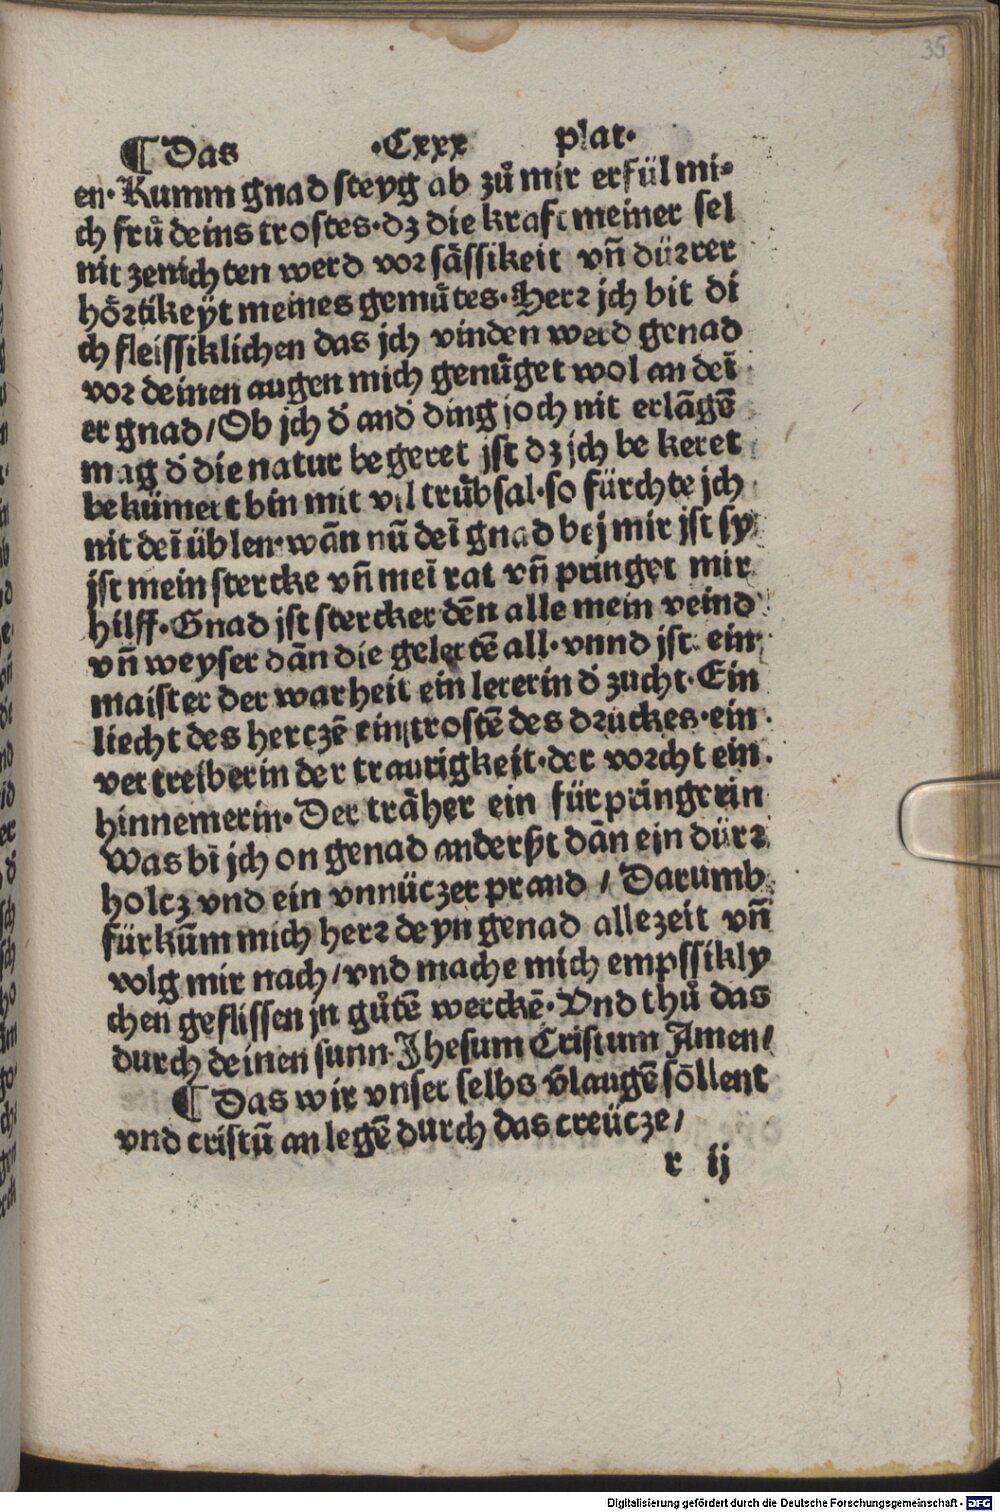 35
¶ Das ·Cxxx plat·
en· Kumm gnad steyg ab zů mir erfül mi⸗
ch frů deins trostes· dz die kraft meiner sel
nit zenichten werd vor sässikeit vñ dürrer
hörtikeyt meines gemůtes· Herr jch bit di
ch fleissiklichen das jch vinden werd genad
vor deinen augen mich genůget wol an deī
er gnad/ Ob jch d̄ and̄ ding joch nit erlāgē
mag d̄ die natur begeret jst dz jch be keret
bekümert bin mit vil trůbsal· so fürchte jch
nit deī üblen· wān nū deī gnad bej mir jst sy
jst mein stercke vñ meī rat vñ pringet mir
hilff· Gnad jst stercker dēn alle mein veind
vñ weyser dān die gelertē all· vnnd jst ein
maister der warheit ein lererin d̄ zucht· Ein
liecht des hertzē ein trostē des druckes· ein
vertreiberin der traurigkeit· der vorcht ein
hinnemerin· Der träher ein fürpringerin
Was bī jch on genad anderst dān ein dürr
holtz vnd ein vnnützer prand / Darumb
fürkūm mich herr deyn genad allezeit vñ
volg mir nach/ vnd mache mich empssikly
chen geflissen jn gůtē werckē· Vnd thů das
durch deinen sunn· Jhesum Cristum Amen/
¶ Das wir vnser selbs v̄laugē söllent
vnd cristū an legē durch das creütze/
r ij
Digitalisierung gefördert durch die Deutsche Forschungsgemeinschaft - DFG